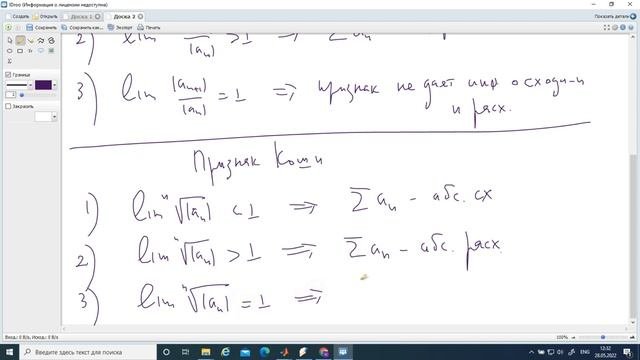 IDroo (Информация о лицензии недоступна)
Создать Открыть Доска 1 Доска 2
Сохранить Сохранить как... Экспорт Печать Показать детали
Граница
Закрасить
2) lim / |aₙ| > 1 ⇒ Σ aₙ
3) lim |aₙ₊₁| / |aₙ| = 1 ⇒ признак не дает инф о сходи-и
и расх.
Признак Коши
1) lim ⁿ√|aₙ| < 1 ⇒ Σ aₙ - абс. сх
2) lim ⁿ√|aₙ| > 1 ⇒ Σ aₙ - абс. расх.
3) lim ⁿ√|aₙ| = 1 ⇒
Вход: 0 B/s, Исход: 0 B/s 100%
Введите здесь текст для поиска
ENG 12:32 28.05.2022